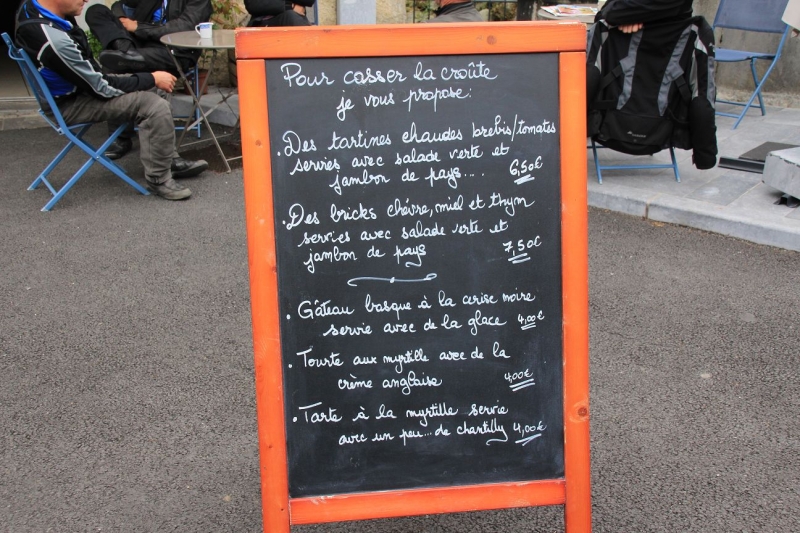 Pour casser la croûte
je vous propose:
. Des tartines chaudes brebis/tomates
servies avec salade verte et
jambon de pays.... 6,50€
. Des bricks chévre, miel et thym
servies avec salade verte et
jambon de pays 7,50€
. Gâteau basque à la cerise noire
servie avec de la glace 4,00€
. Tourte aux myrtille avec de la
crème anglaise 4,00€
. Tarte à la myrtille servie
avec un peu... de chantilly 4,00€